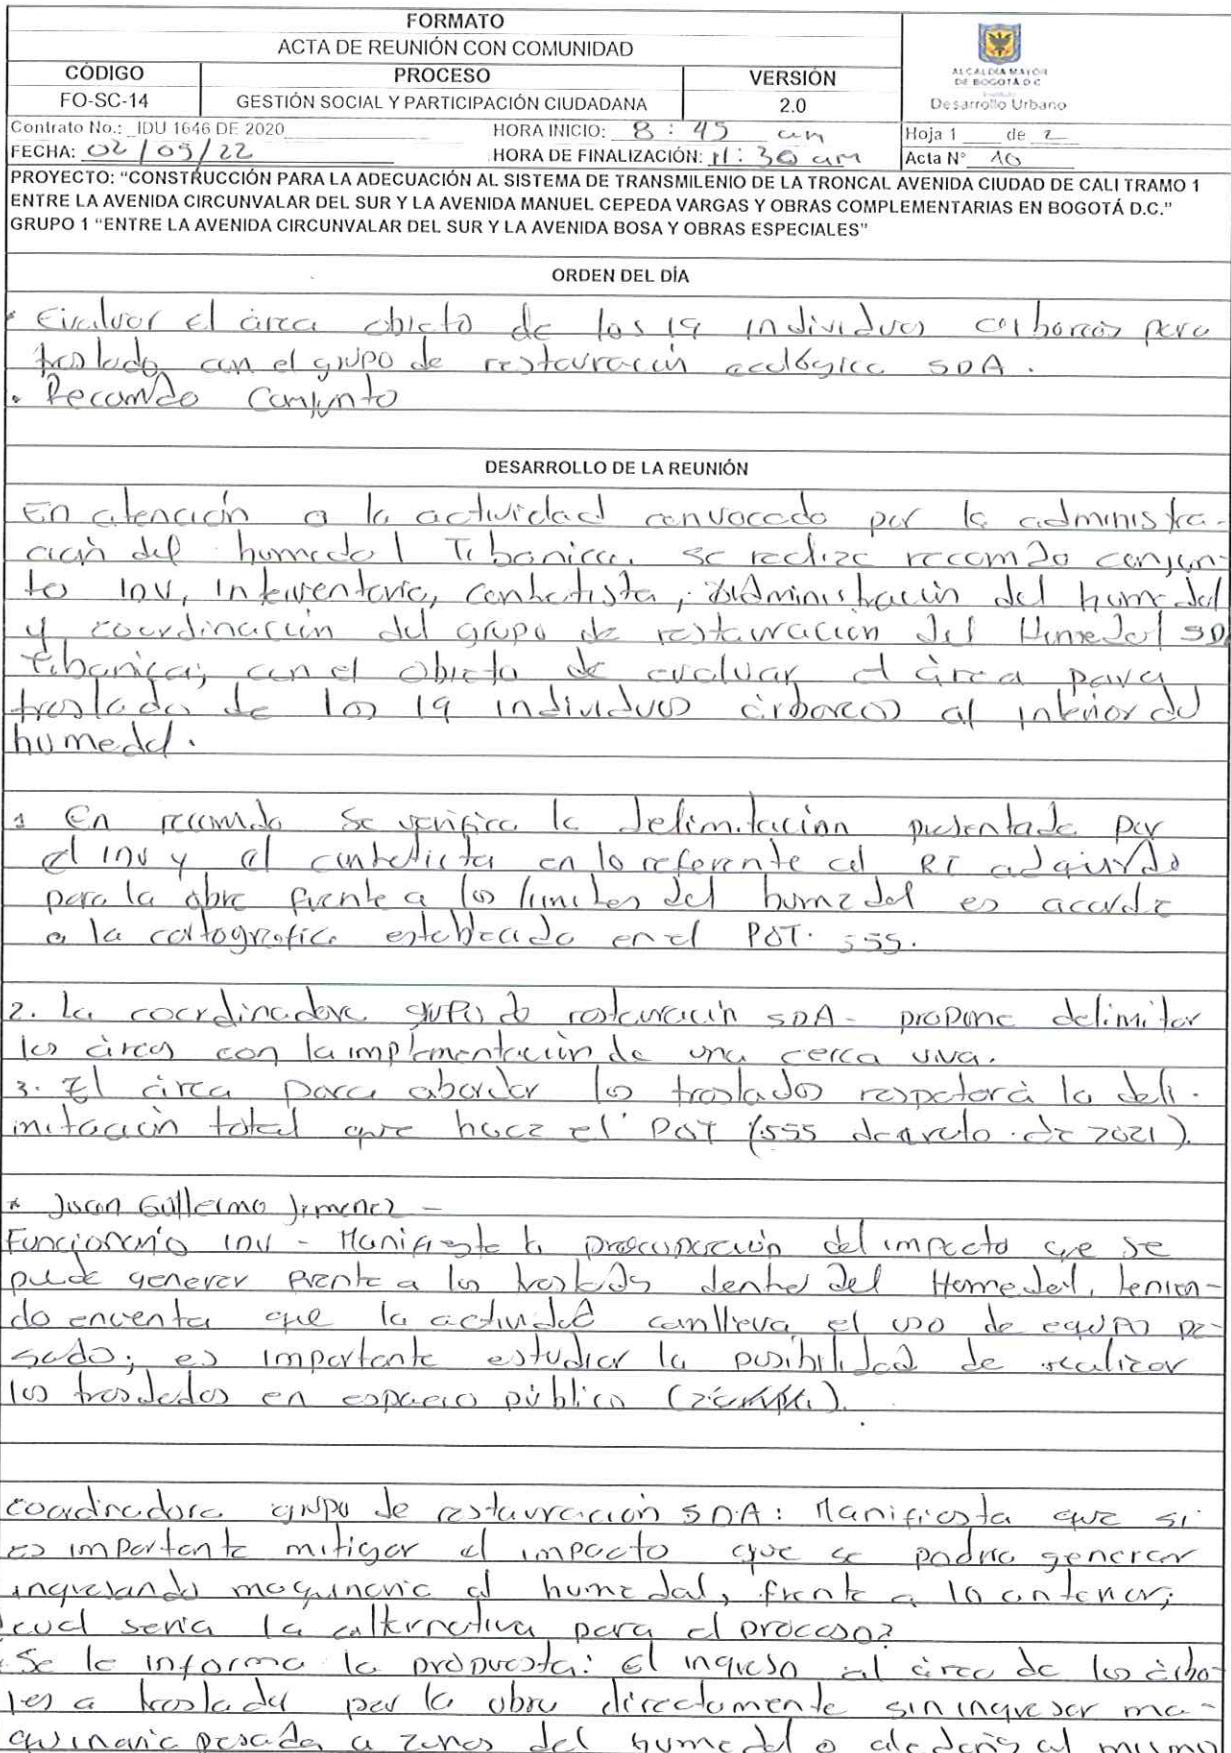 FORMATO
ACTA DE REUNIÓN CON COMUNIDAD
CÓDIGO PROCESO VERSIÓN
FO-SC-14 GESTIÓN SOCIAL Y PARTICIPACIÓN CIUDADANA 2.0
ALCALDÍA MAYOR
DE BOGOTÁ D.C.
Desarrollo Urbano
Contrato No.: IDU 1646 DE 2020 HORA INICIO: 8:45 am Hoja 1 de 2
FECHA: 02/09/22 HORA DE FINALIZACIÓN: 11:30 am Acta N° 10
PROYECTO: “CONSTRUCCIÓN PARA LA ADECUACIÓN AL SISTEMA DE TRANSMILENIO DE LA TRONCAL AVENIDA CIUDAD DE CALI TRAMO 1
ENTRE LA AVENIDA CIRCUNVALAR DEL SUR Y LA AVENIDA MANUEL CEPEDA VARGAS Y OBRAS COMPLEMENTARIAS EN BOGOTÁ D.C.”
GRUPO 1 “ENTRE LA AVENIDA CIRCUNVALAR DEL SUR Y LA AVENIDA BOSA Y OBRAS ESPECIALES”
ORDEN DEL DÍA
• Evaluar el área objeto de los 19 individuos arboreos para
traslado, con el grupo de restauración ecológica SDA.
• Recorrido Conjunto
DESARROLLO DE LA REUNIÓN
En atención a la actividad convocada por la administra-
ción del humedal Tibanica, se realiza recorrido conjun-
to IDU, Interventoria, contratista, administración del humedal
y coordinación del grupo de restauración del Humedal SD
Tibanica; con el objeto de evaluar el área para
traslado de los 19 individuos árboreos al interior del
humedal.
1 En recorrido se verifica la delimitación presentada por
el IDU y el contratista en lo referente al RT adquirido
para la obra frente a los limites del humedal es acorde
a la cartografica establecida en el POT. 555.
2. La coordinadora grupo de restauración SDA - propone delimitar
las áreas con la implementación de una cerca viva.
3. El área para abordar los traslados respetará la deli-
mitación total que hace el POT (555 decreto de 2021).
* Juan Guillermo Jimenez -
Funcionario IDU - Manifiesta la preocupación del impacto que se
puede generar frente a los traslados dentro del Humedal, tenien-
do encuenta que la actividad conlleva el uso de equipo pe-
sado; es importante estudiar la posibilidad de realizar
los traslados en espacio público
coordinadora grupo de restauración SDA: Manifiesta que si
es importante mitigar el impacto que se podria generar
ingresando maquinaria al humedal, frente a lo anterior;
cual seria la alternativa para el proceso?
Se le informa la propuesta: El ingreso al área de los árbo-
les a trasladar por la obra directamente sin ingresar ma-
quinaria pesada a zonas del humedal o aledaña al mismo